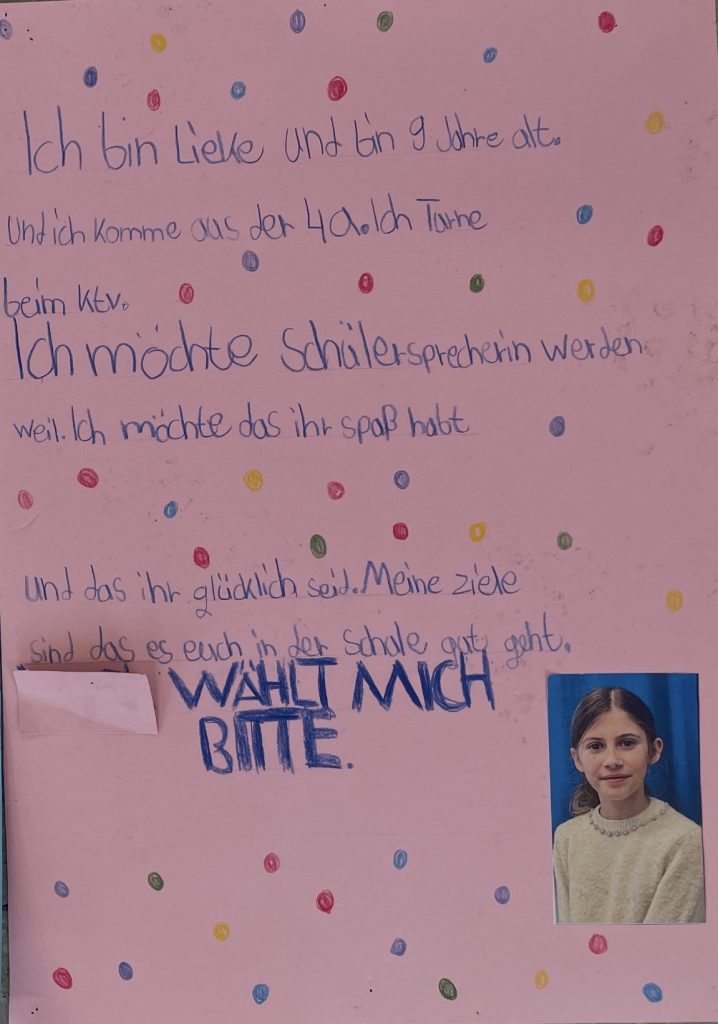 Ich bin Lieke und bin 9 Jahre alt.
Und ich komme aus der 4a. Ich Turne
beim Ktv.
Ich möchte Schülersprecherin werden
weil. Ich möchte das ihr spaß habt
und das ihr glücklich seid. Meine ziele
sind das es euch in der Schule gut geht.
WÄHLT MICH
BITTE.